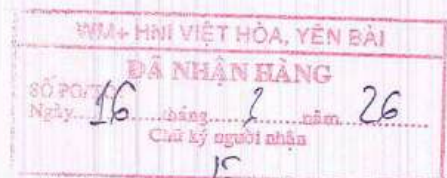 WM+ HNI VIỆT HÒA, YÊN BÀI
ĐÃ NHẬN HÀNG
SỐ PO/
Ngày 16 tháng 2 năm 26
Chữ ký người nhận